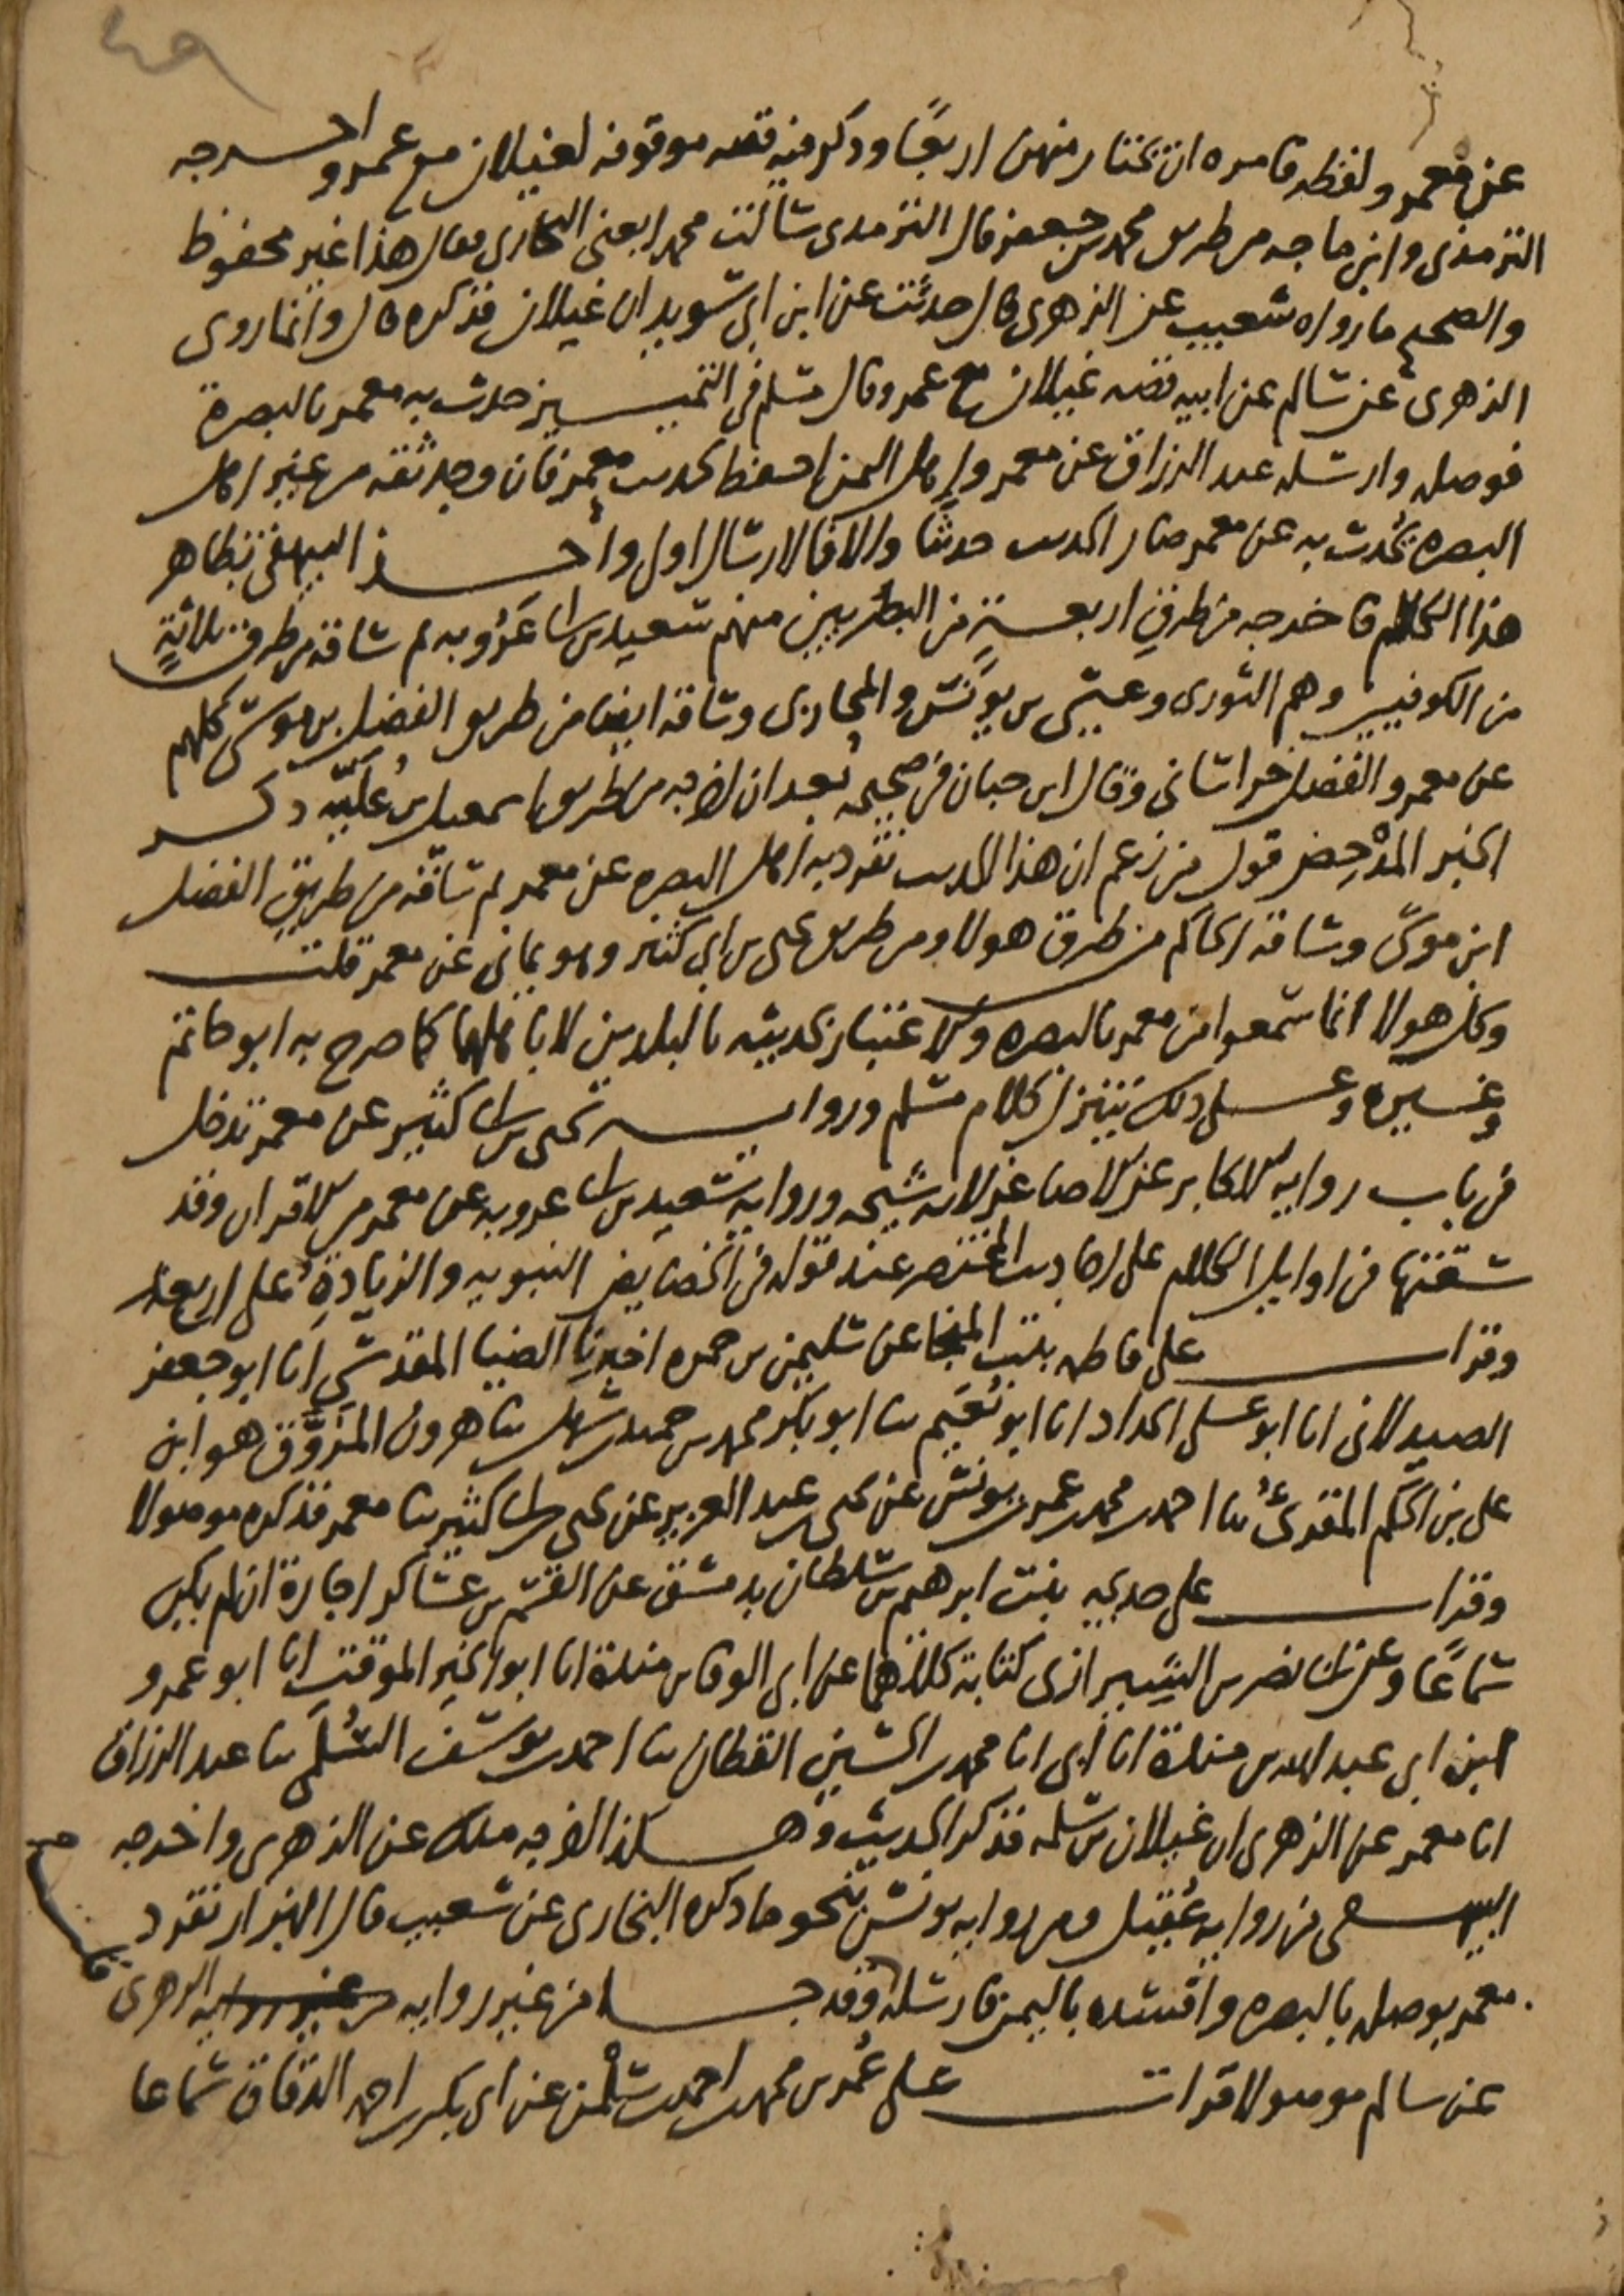 ٤٩
عن معمر ولفظه فامره ان يختار منهن اربعًا وذكر فيه قصه موقوفه لغيلان مع عمر واخرجه
الترمذى وابن ماجه من طريق محمد بن جعفر قال الترمذى سالت محمدا يعنى البخارى فقال هذا غير محفوظ
والصحيح ما رواه شعيب عن الزهرى قال حدثت عن ابن ابى سويد ان غيلان فذكره قال وانما روى
الزهرى عن سالم عن ابيه قصه غيلان مع عمر وقال مسلم فى التمييز حدث به معمر بالبصرة
فوصله وارسله عبد الرزاق عن معمر واهل اليمن احفظ لحديث معمر فان وجد ثقه من غير اهل
البصره يحدث به عن معمر صار الحديث حديثا والا فالارسال اولى واخذ البيهقى بظاهر
هذا الكلام فاخرجه من طرق اربعةٍ من البصريين منهم سعيد بن ابى عَرُوبه ثم ساقه من طرق ثلاثةٍ
من الكوفيين وهم الثورى وعيسى بن يونس والمحاربى وساقه ايضا من طريق الفضل بن موسى كلهم
عن معمر والفضل خراسانى وقال ابن حبان فى صحيحه بُعد ان اخرجه من طريق اسمعيل بن عُلَيّه ذكر
الخبر المدْحِض قول من زعم ان هذا الحديث تفرد به اهل البصره عن معمر ثم ساقه من طريق الفضل
ابن موسى وساقه الحاكم من طرق هولا ومن طريق يحيى بن ابى كثير وهو يمانى عن معمر قلت
وكل هولا انما سمعوا من معمر بالبصره والاعتبار بحديثه بالبلدين لا باهلهما كما صرح به ابو حاتم
وغيره وعلى ذلك يتنزل كلام مسلم ورواية يحيى بن ابى كثير عن معمر تدخل
فى باب روايه الاكابر عن الاصاغر لانه شيخه وروايه سعيد بن ابى عروبه عن معمر من الاقران وقد
سقتها فى اوايل الكلام على احاديث المختصر عند قوله فى الخصايص النبويه والزيادةِ على اربعة
وقرات على فاطمه بنت المنجا عن سليمن بن حمزه اخبرنا الضيا المقدسى انا ابو جعفر
الصيدلانى انا ابو على الحداد انا ابو نُعَيم ثنا ابو بكر محمد بن حميد بن سهل ثنا هرون المزوَّق هو ابن
على بن الحكم المقرئ ثنا احمد بن محمد بن عمر بن يونس عن يحيى بن عبد العزيز عن يحيى بن ابى كثير ثنا معمر فذكره موصولا
وقرات على خديجه بنت ابرهيم بن سلطان بدمشق عن القسم بن عساكر اجازة ان لم يكن
سماعًا وعن ابى نصر بن الشيرازى كتابة كلاهما عن ابى الوفا بن مندة انا ابو الخير الموقت انا ابو عمرو
ابن ابى عبد الله بن مندة انا ابى انا محمد بن الحسين القطان ثنا احمد بن يوسف السُّلَمى ثنا عبد الرزاق
انا معمر عن الزهرى ان غيلان بن سلمه فذكر الحديث وهكذا اخرجه ملك عن الزهرى واخرجه
البيهقى من روايه عُقيل ومن روايه يونس بنحو ما ذكره البخارى عن شعيب قال البزار تفرد
معمر بوصله بالبصره وافسده باليمن فارسله وقد جا من غير روايه من غير روايه الزهرى
عن سالم موصولا قرات على عُمر بن محمد بن احمد بن سلْمن عن ابى بكر بن احمد الدقاق سماعا